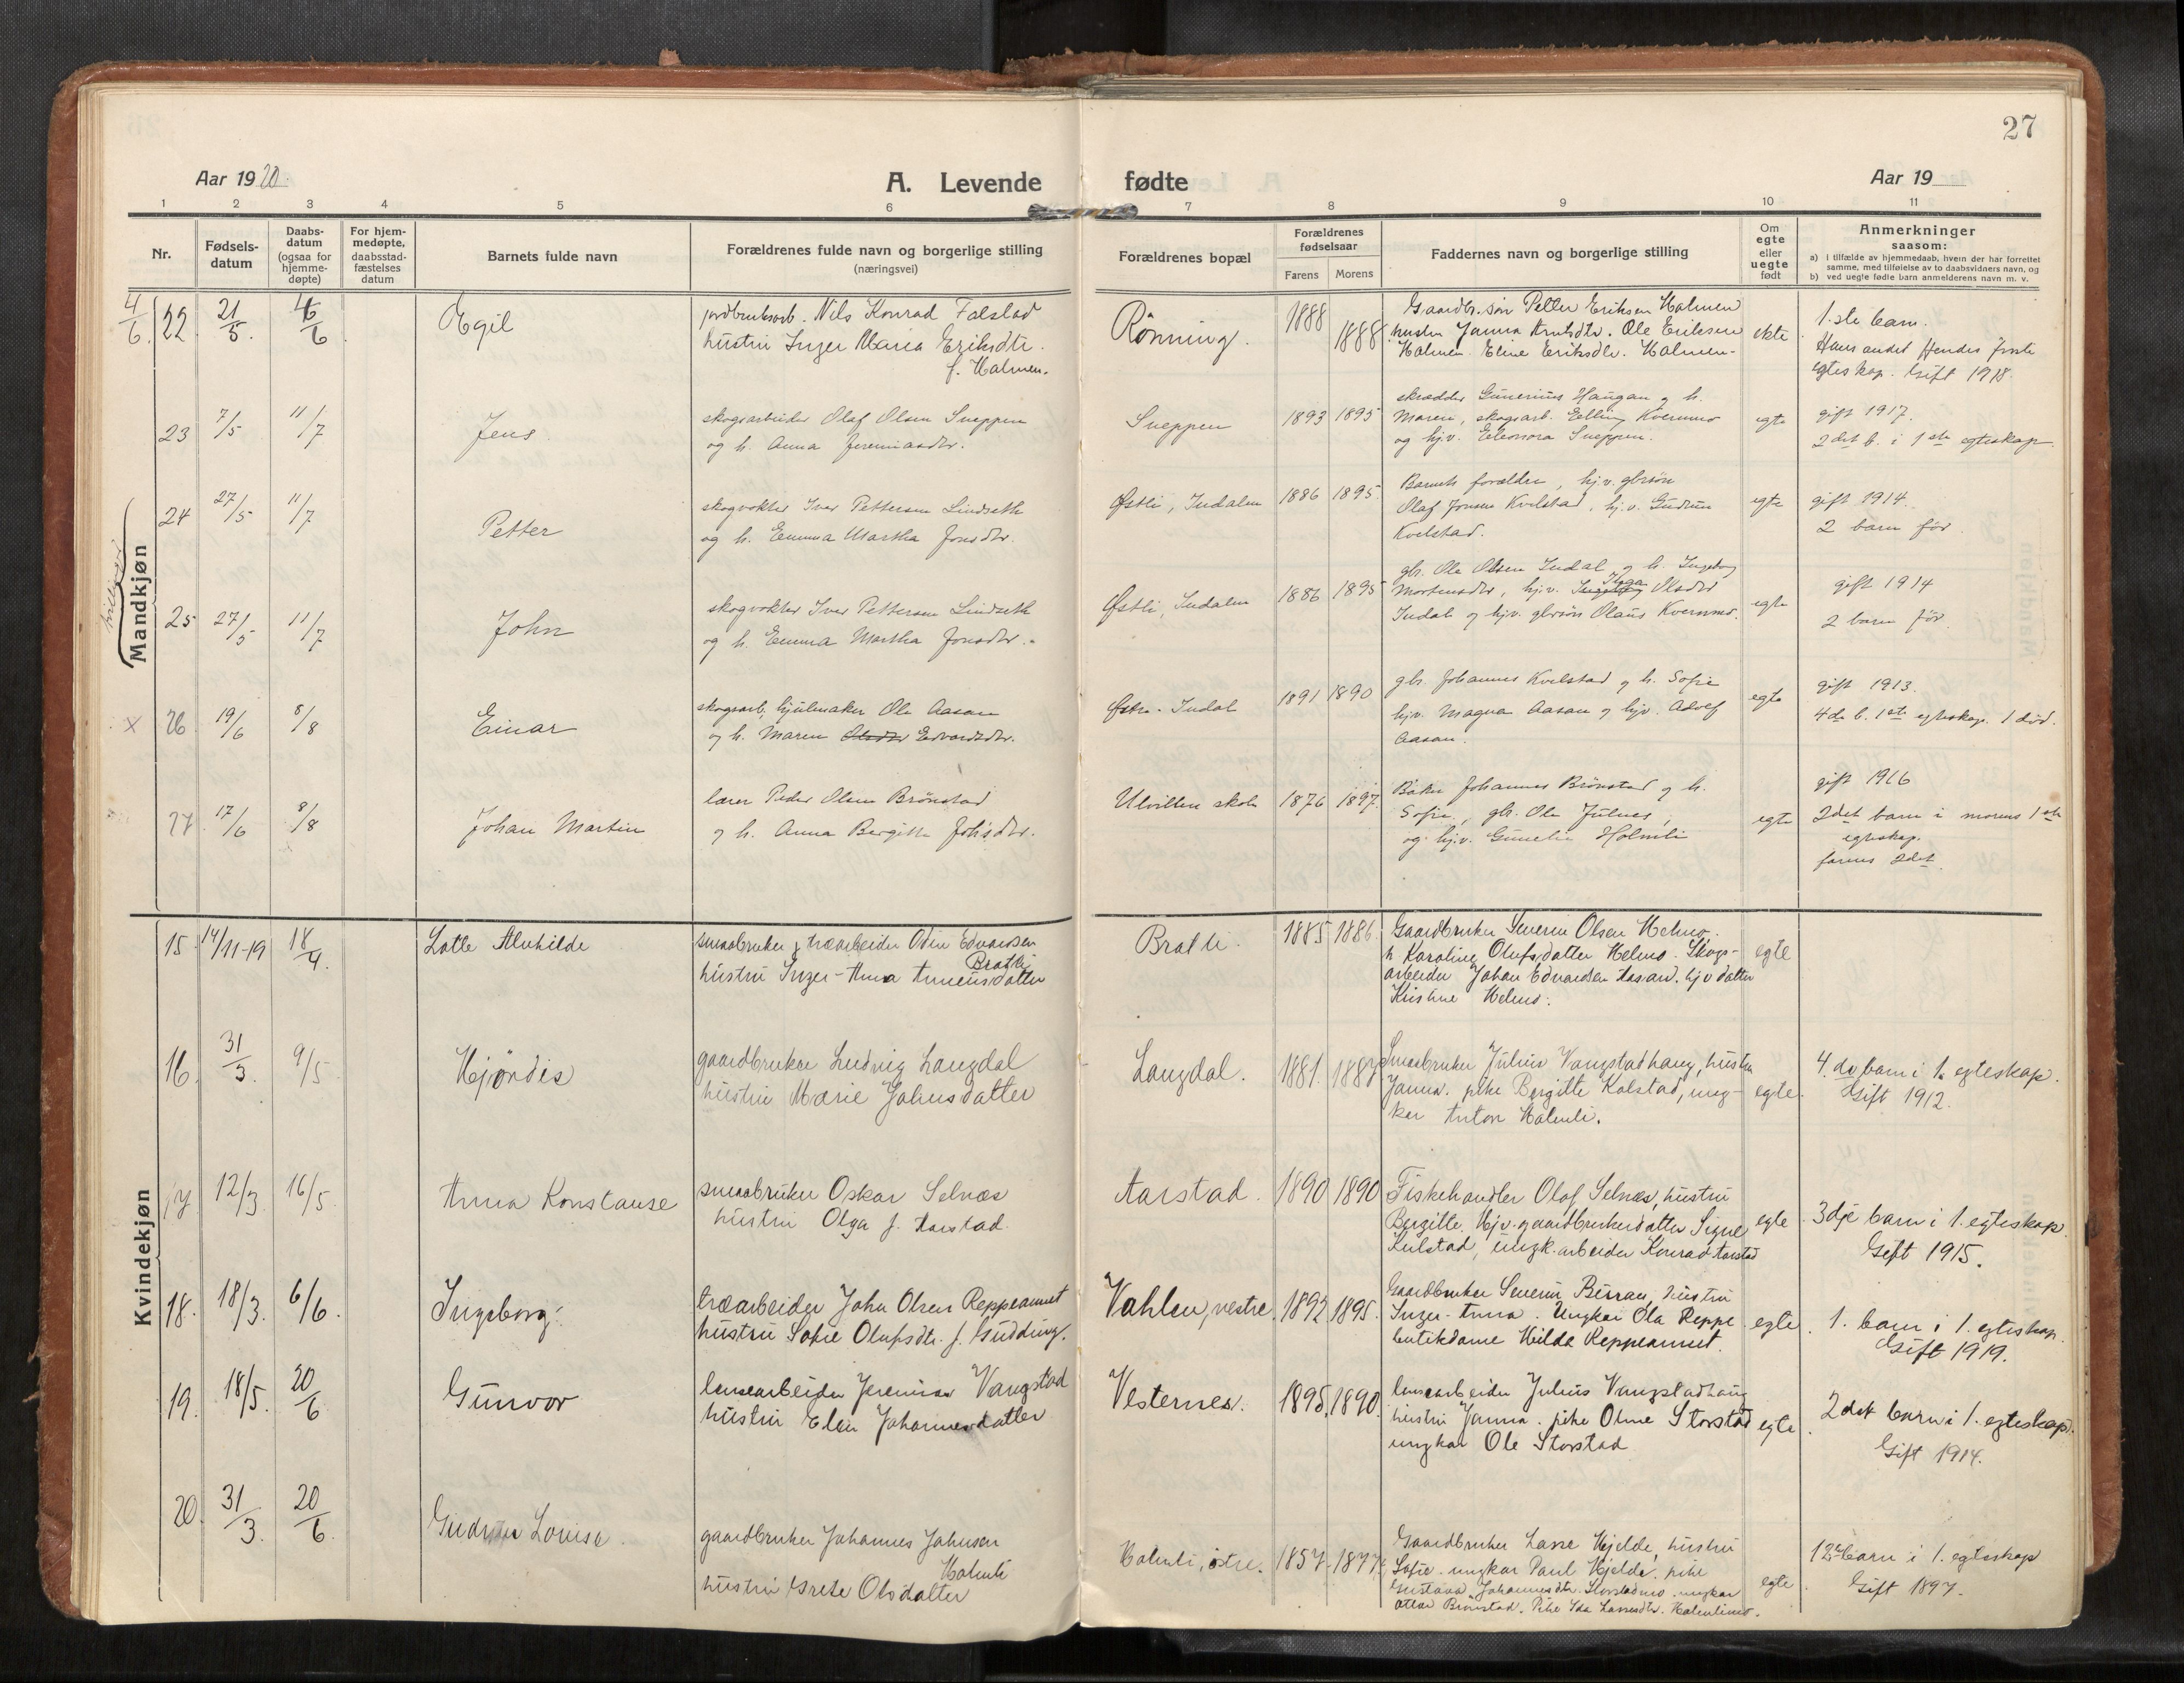 27
Aar 1920.
A. Levende fødte
Aar 19
1 2 3 4 5 6 7 8 9 10 11
Nr.
Fødsels-
datum
Daabs-
datum
(ogsaa for
hjemme-
døpte)
For hjem-
medøpte,
daabsstad-
fæstelses
datum
Barnets fulde navn
Forældrenes fulde navn og borgerlige stilling
(næringsvei)
Forældrenes bopæl
Forældrenes
fødselsaar
Farens Morens
Faddernes navn og borgerlige stilling
Om
egte
eller
uegte
født
Anmerkninger
saasom:
a) i tilfælde av hjemmedaab, hvem der har forrettet
samme, med tilføielse av to daabsvidners navn, og
b) ved uegte fødte barn anmelderens navn m. v.
Mandkjøn
4/6 22 21/5. 6/6 Egil
jordbruksarb. Nils Konrad Falstad
hustru Inger Maria Eriksdtr.
f. Halmen.
Rönning. 1888 1888
Gaardbr. søn Petter Eriksen Halmen
hustru Janna Arntsdtr. Ole Eriksen
Halmen. Eline Eriksdtr. Halmen.
ekte
1.ste barn.
Hans andet Hendes første
egteskap. Gift 1918.
23 7/5 11/7 Jens
skogsarbeider Olaf Olsen Sneppen
og h. Anna Jeremiasdtr.
Sneppen 1893 1895
skrædder Gunerius Haugan og h.
Maren, skogsarb. Elling Kvernmo
og hj.v. Eleonora Sneppen.
egte
gift 1917.
2det b. i 1ste egteskap
24 27/5 11/7 Petter
skogvokter Iver Pettersen Lindseth
og h. Emma Martha Jonsdtr.
Østli, Indalen 1886 1895
Barnets forældre, hj.v. gbrsøn
Olaf Jonsen Kvelstad, hj.v. Gudrun
Kvelstad.
egte
gift 1914.
2 barn før.
25 27/5 11/7 John
skogvokter Iver Pettersen Lindseth
og h. Emma Martha Jonsdtr.
Østli, Indalen 1886 1895
gbr. Ole Olsen Indal og h. Ingeborg
Mortensdtr, hj.v. Ingeborg Inga Olsdtr
Indal og hjv. gbrsøn Olaus Kvernmo.
egte
gift 1914
2 barn før.
x 26 19/6 8/8 Einar
skogsarb, hjulmaker Ole Aasan
og h. Maren Olsdtr Edvardsdtr.
Østre Indal 1891 1890
gbr. Johannes Kvelstad og h. Sofie
hjv. Magna Aasan og hjv. Adolf
Aasan.
egte
gift 1913.
4de b. 1ste egteskap. 1 død.
27 17/6 8/8 Johan Martin
lærer Peder Olsen Brönstad
og h. Anna Bergitte Johsdtr.
Ulvillen skole 1876 1897.
Baker Johannes Brönstad og h.
Sofie, gbr. Ole Julnes,
og hj.v. Gunelie Holmli
egte
gift 1916
2det barn i morens 1ste
egteskap.
farens 2det
Kvindekjøn
15 14/11-19 18/4. Lotte Alvhilde
smaabruker & træarbeider Odin Edvardsen
Bratli
hustru Inger-Anna Arneusdatter
Bratli. 1885 1886
Gaardbruker Severin Olsen Helmo.
h Karoline Olufsdatter Helmo. Skogs-
arbeider Johan Edvardsen Aasan. hjv datter
Kristine Helmo.
egte
16. 31/3. 9/5 Hjördis
gaardbruker Ludvig Langdal
hustru Marie Johnsdatter
Langdal. 1881. 1887
Smaabruker Julius Vangstadhaug, hustru
Janna. pike Bergitte Kolstad, ung-
kar Anton Halmli.
egte.
4.de barn i 1. egteskap.
Gift 1912.
17 12/3. 16/5 Anna Konstanse
smaabruker Oskar Selnæs
hustru Olga f. Aarstad
Aarstad. 1890 1890
Fiskehandler Olof Selnæs, hustru
Bergitte. Hjv. gaardbrukerdatter Signe
Kulstad, ungk. arbeider Konrad Aarstad
egte
3dje barn i 1. egteskap.
Gift 1915.
18. 18/3. 6/6. Ingeborg.
træarbeider John Olsen Reppeamnet
hustru Sofie Olufsdtr. f. Gudding.
Vahlen, vestre. 1892 1895.
Gaardbruker Severin Bürran, hustru
Inger-Anna. Ungkar Ola Reppe
butikdame Hilda Reppeamnet.
egte.
1. barn i 1. egteskap.
Gift 1919.
19. 18/5. 20/6 Gunvor
lensearbeider Jeremias Vangstad
hustru Elen Johannesdatter
Vesternes. 1895. 1890.
lensearbeider Julius Vangstadhaug
hustru Janna. pike Oline Storstad
ungkar Ole Storstad
egte.
2det barn i 1. egteskap.
Gift 1914.
20. 31/3. 20/6. Gudrun Louise.
gaardbruker Johannes Johnsen
Halmli
hustru Grete Olsdatter
Halmli, östre. 1857. 1877.
Gaardbruker Lasse Hjelde, hustru
Sofie. ungkar Paul Hjelde. pike
Gustava Johannesdtr. Storstadmo. ungkar
Ottar Brönstad. Pike Ida Lassesdtr. Halmlimo.
egte.
12te barn i 1. egteskap
Gift 1897.